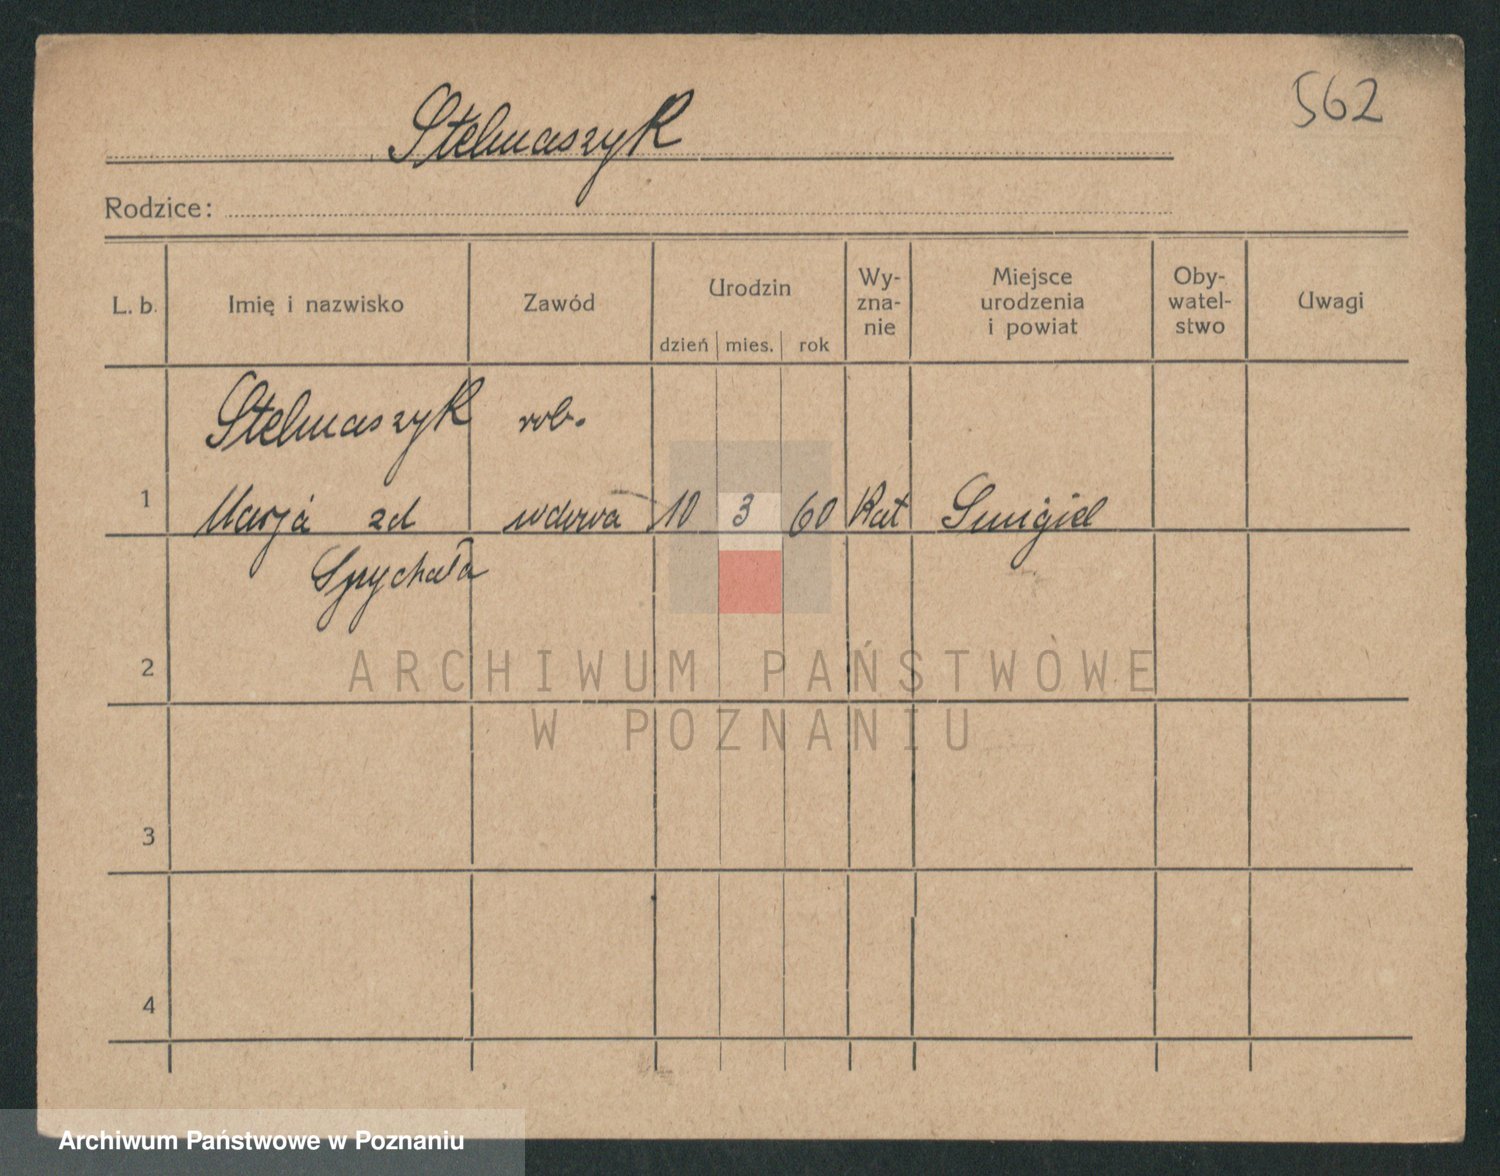 562
Stelmaszyk
Rodzice:
L. b. Imię i nazwisko Zawód Urodzin Wy-zna-nie Miejsce urodzenia i powiat Oby-watel-stwo Uwagi
dzień mies. rok
Stelmaszyk rob.
1 Marja zd wdowa 10 3 60 Kat Smigiel
Spychała
2
ARCHIWUM PAŃSTWOWE
W POZNANIU
3
4
Archiwum Państwowe w Poznaniu